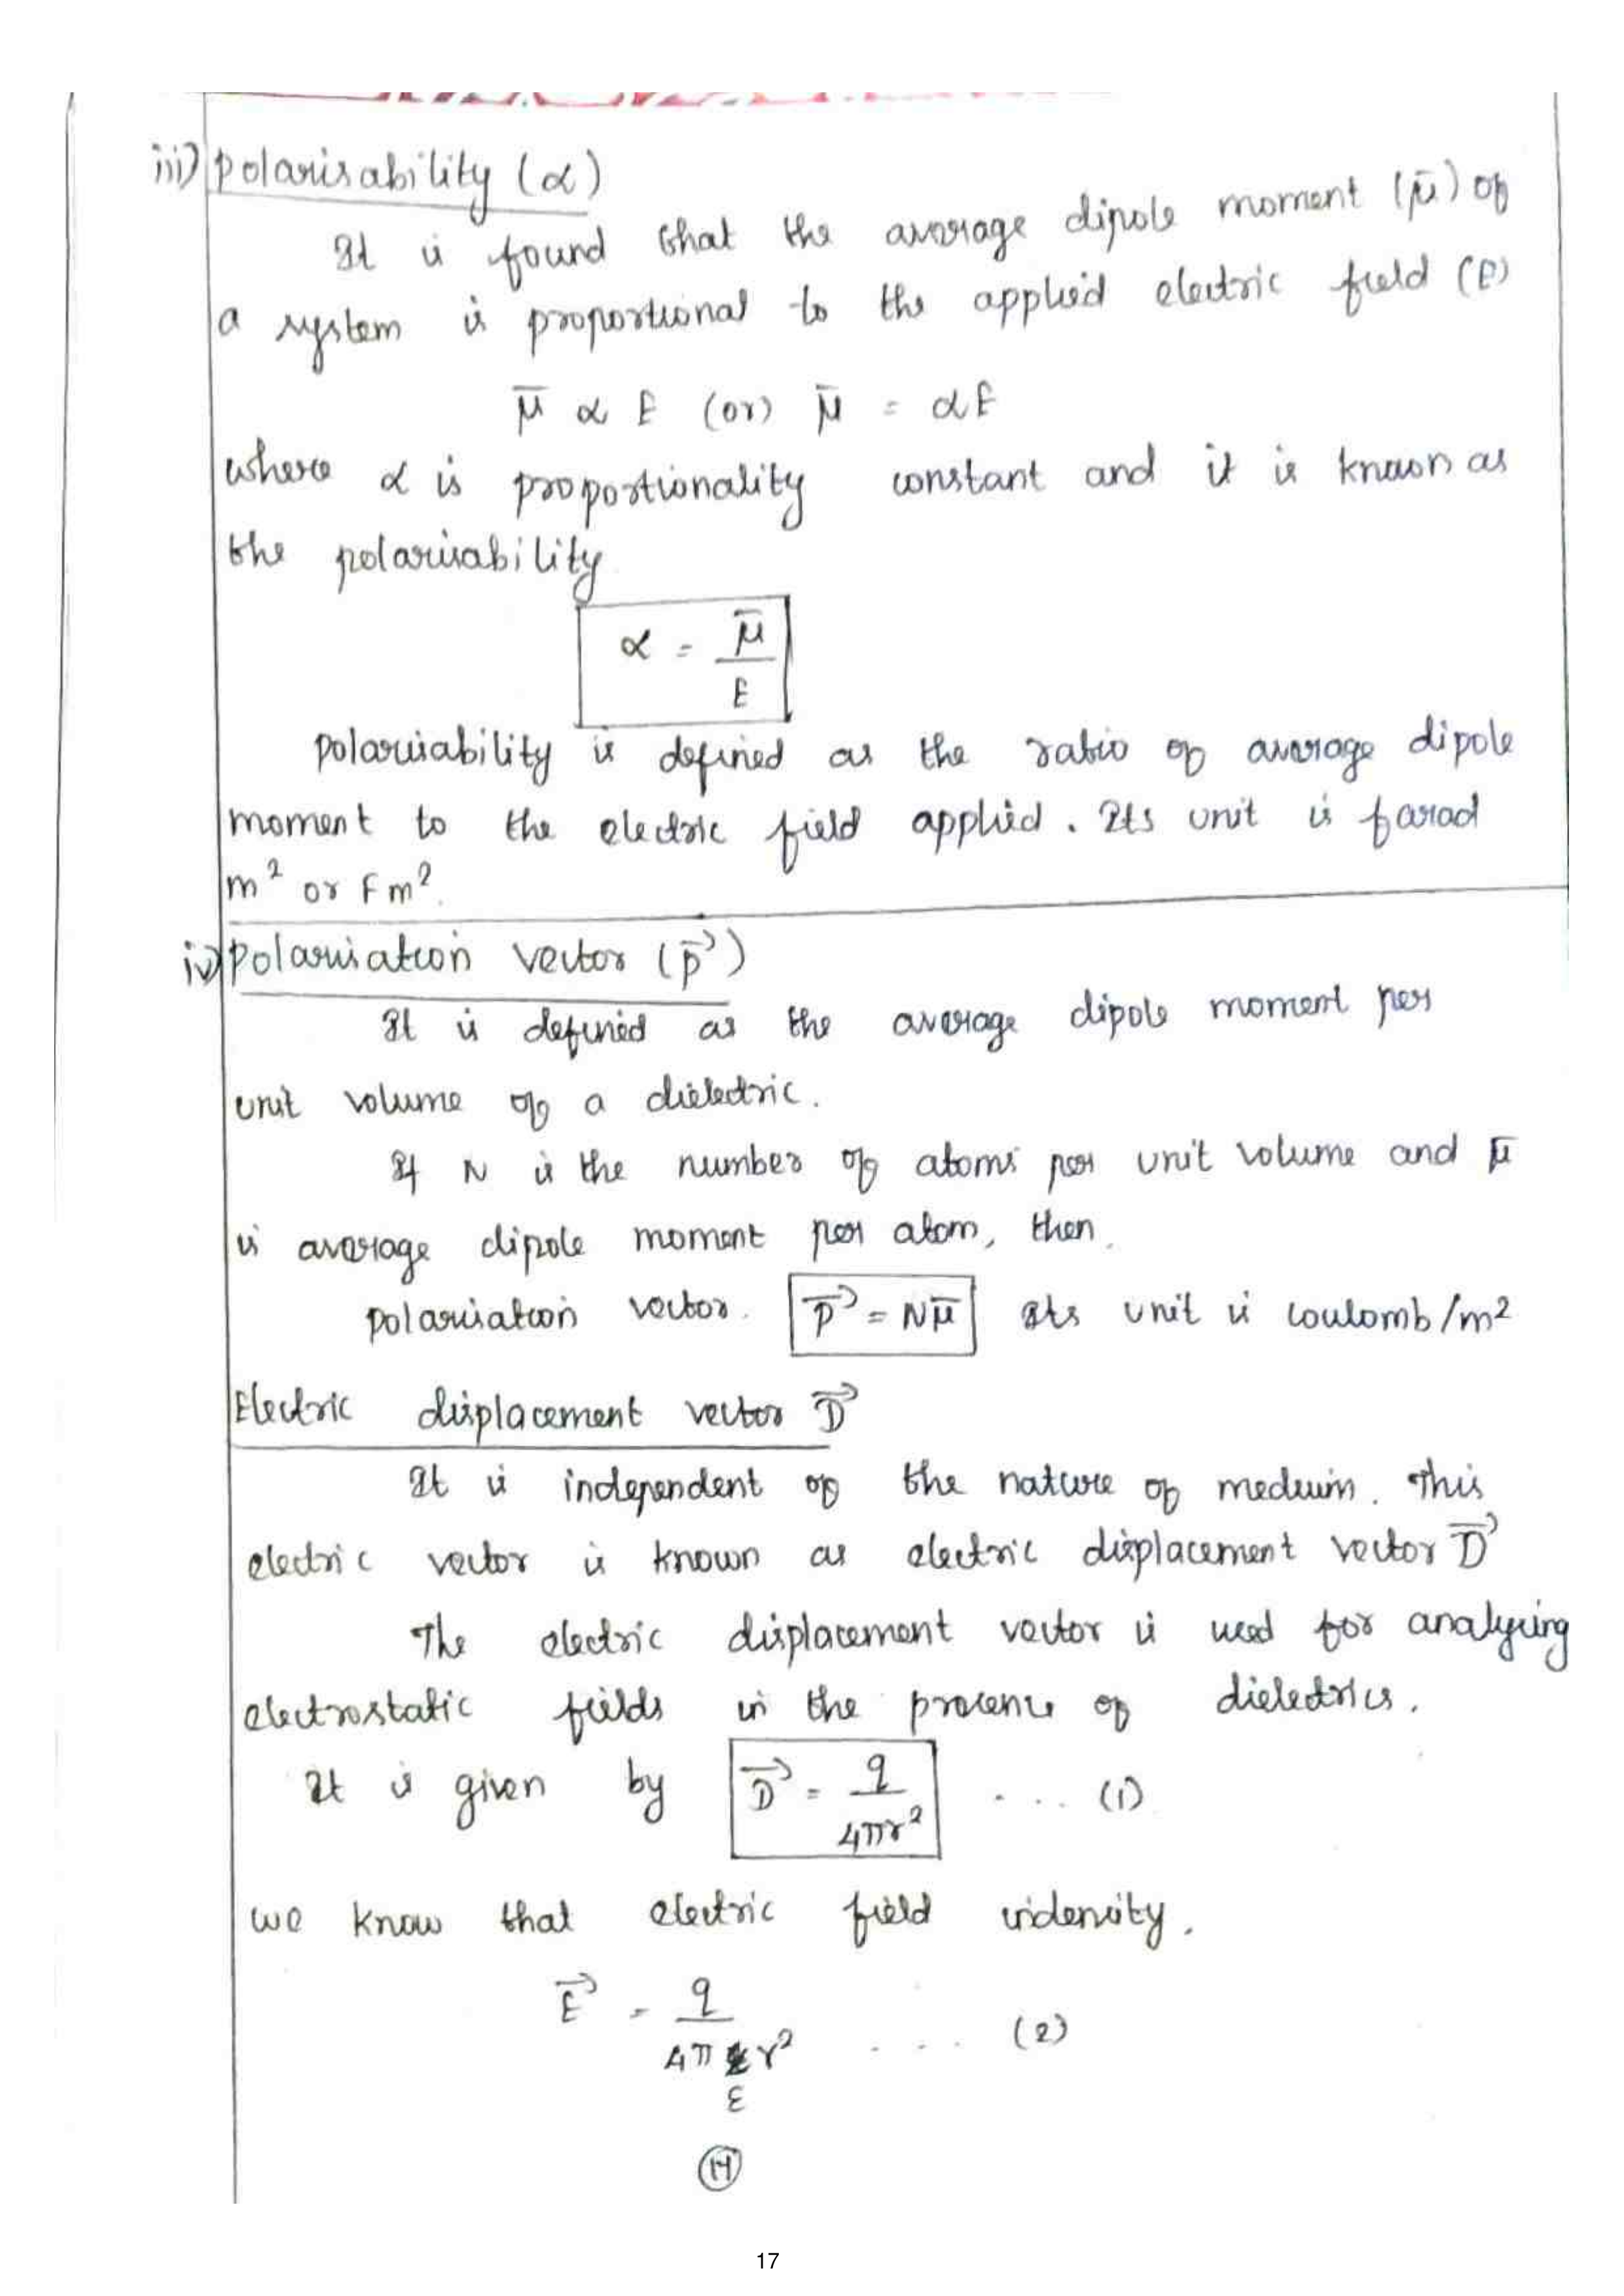 iii) polarisability (α)
It is found that the average dipole moment (μ̄) of
a system is proportional to the applied electric field (E)
μ̄ α E (or) μ̄ = αE
where α is proportionality constant and it is known as
the polarisability
α = μ̄ / E
polarisability is defined as the ratio of average dipole
moment to the electric field applied. Its unit is farad
m² or Fm².
iv) polarisation vector (P⃗)
It is defined as the average dipole moment per
unit volume of a dielectric.
If N is the number of atoms per unit volume and μ̄
is average dipole moment per atom, then.
polarisation vector. P⃗ = Nμ̄ Its unit is coulomb/m²
Electric displacement vector D⃗
It is independent of the nature of medium. This
electric vector is known as electric displacement vector D⃗
The electric displacement vector is used for analysing
electrostatic fields in the presence of dielectrics.
It is given by D⃗ = q / 4πr² .... (1)
we know that electric field intensity.
E⃗ = q / 4πεr² .... (2)
14
17